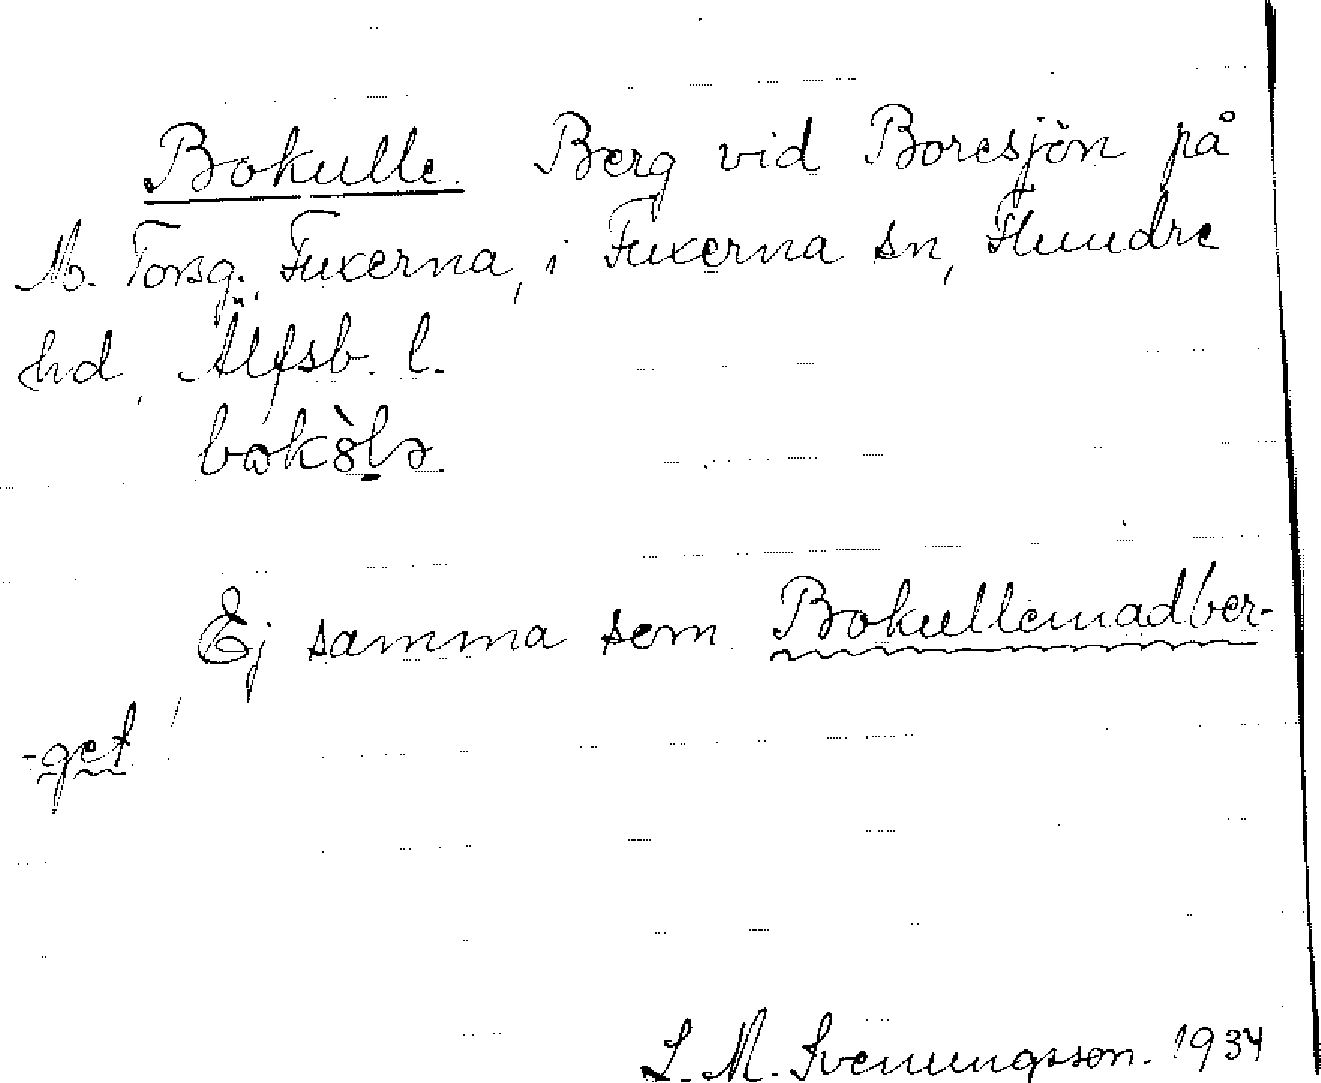 Bokulle. Berg vid Boresjön på
M. Torsg. Fuxerna, i Fuxerna sn, Flundre
hd, Älfsb. l.
bokȍlə.
Ej samma som Bokullemadber-
-get!
S. M. Svenungsson. 1934